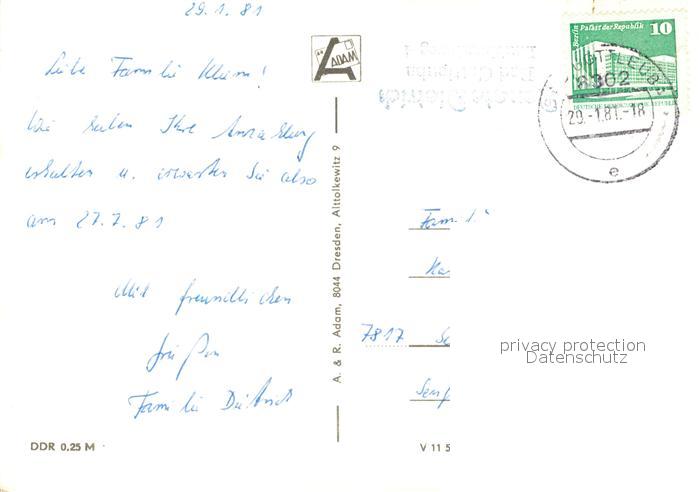 29.1.81
Liebe Familie Klamm!
Wir haben Ihre Anzahlung
erhalten u. erwarten Sie also
am 27.7.81
Mit freundlichen
Grüßen
Familie Dietrich
ADAM
A. & R. Adam, 8044 Dresden, Alttolkewitz 9
DDR 0,25 M
V 11 5
Berlin Palast der Republik 10
DEUTSCHE DEMOKRATISCHE REPUBLIK
29.-1.81.-18
e
Famili
7817 Se
privacy protection
Datenschutz